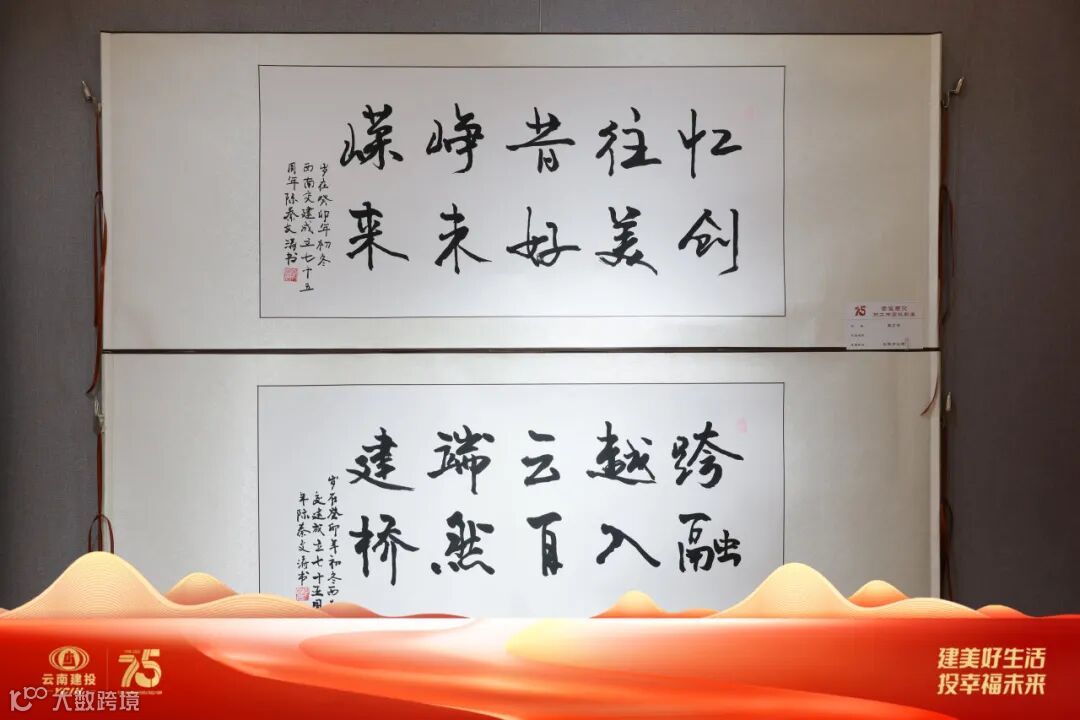 忆往昔峥嵘
创美好未来
岁在癸卯年初冬
西南交建成立七十五
周年陈蔡文涛书
75
跨越云端建
融入自然桥
岁在癸卯年初冬西
交建成立七十五周
年陈蔡文涛书
云南建投
YCIH
75
大数跨境
建美好生活
投幸福未来